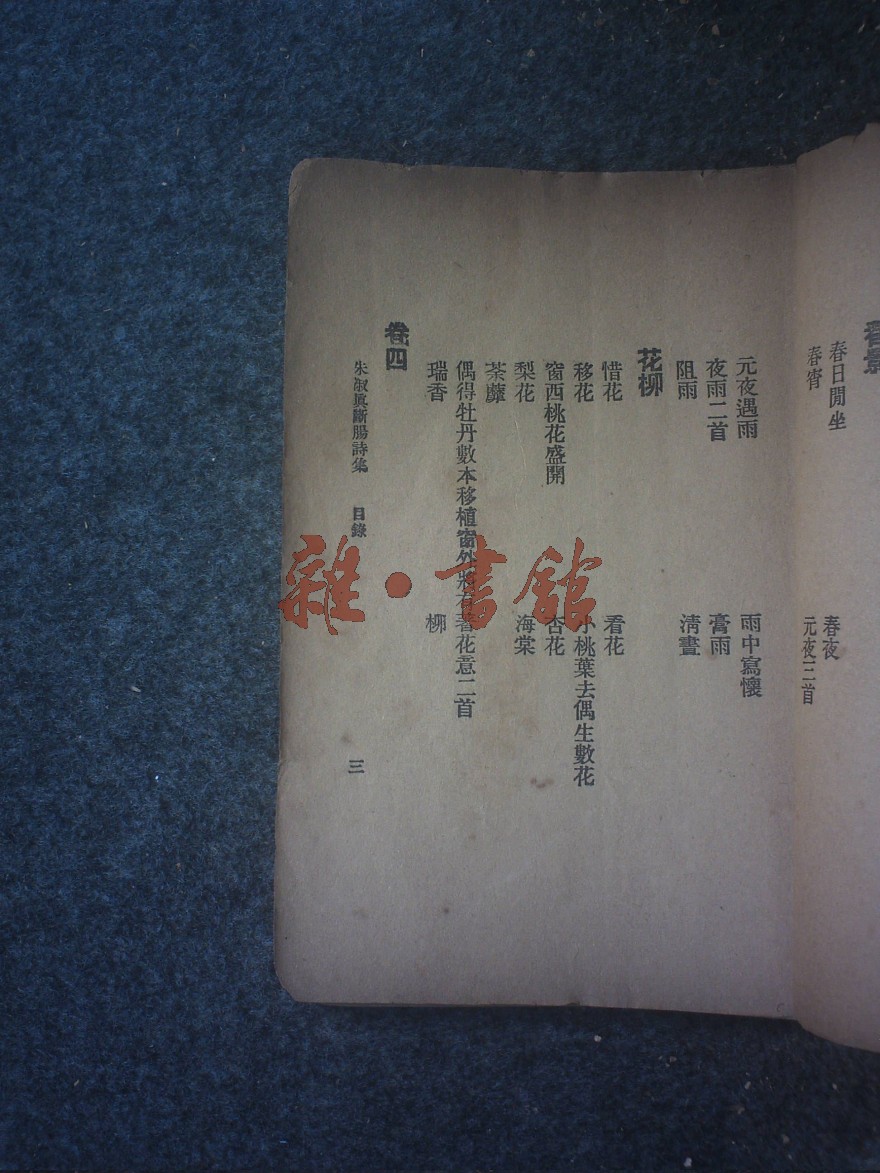 春景
春日閒坐 春夜
春宵 元夜三首
元夜遇雨 雨中寫懷
夜雨二首 膏雨
阻雨 清晝
花柳
惜花 看花
移花 小桃葉去偶生數花
窗西桃花盛開 杏花
梨花 海棠
荼蘼
偶得牡丹數本移植窗外將有著花意二首
瑞香 柳
卷四
朱淑眞斷腸詩集 目錄 三
雜·書館